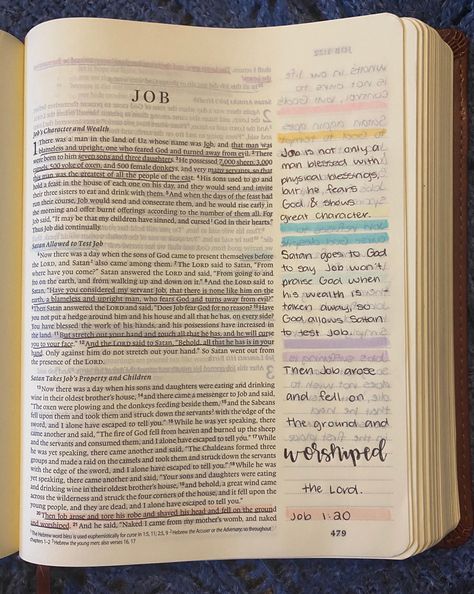 JOB
Job's Character and Wealth
1 There was a man in the land of Uz whose name was Job, and that man was
blameless and upright, one who feared God and turned away from evil. 2 There
were born to him seven sons and three daughters. 3 He possessed 7,000 sheep, 3,000
camels, 500 yoke of oxen, and 500 female donkeys, and very many servants, so that
this man was the greatest of all the people of the east. 4 His sons used to go and
hold a feast in the house of each one on his day, and they would send and invite
their three sisters to eat and drink with them. 5 And when the days of the feast had
run their course, Job would send and consecrate them, and he would rise early in
the morning and offer burnt offerings according to the number of them all. For
Job said, "It may be that my children have sinned, and cursed God in their hearts."
Thus Job did continually.
Satan Allowed to Test Job
6 Now there was a day when the sons of God came to present themselves before
the LORD, and Satan also came among them. 7 The LORD said to Satan, "From
where have you come?" Satan answered the LORD and said, "From going to and
fro on the earth, and from walking up and down on it." 8 And the LORD said to
Satan, "Have you considered my servant Job, that there is none like him on the
earth, a blameless and upright man, who fears God and turns away from evil?"
9 Then Satan answered the LORD and said, "Does Job fear God for no reason? 10 Have
you not put a hedge around him and his house and all that he has, on every side?
You have blessed the work of his hands, and his possessions have increased in
the land. 11 But stretch out your hand and touch all that he has, and he will curse
you to your face." 12 And the LORD said to Satan, "Behold, all that he has is in your
hand. Only against him do not stretch out your hand." So Satan went out from
the presence of the LORD.
Satan Takes Job's Property and Children
13 Now there was a day when his sons and daughters were eating and drinking
wine in their oldest brother's house, 14 and there came a messenger to Job and said,
"The oxen were plowing and the donkeys feeding beside them, 15 and the Sabeans
fell upon them and took them and struck down the servants with the edge of the
sword, and I alone have escaped to tell you." 16 While he was yet speaking, there
came another and said, "The fire of God fell from heaven and burned up the sheep
and the servants and consumed them, and I alone have escaped to tell you." 17 While
he was yet speaking, there came another and said, "The Chaldeans formed three
groups and made a raid on the camels and took them and struck down the servants
with the edge of the sword, and I alone have escaped to tell you." 18 While he was
yet speaking, there came another and said, "Your sons and daughters were eating
and drinking wine in their oldest brother's house, 19 and behold, a great wind came
across the wilderness and struck the four corners of the house, and it fell upon
the young people, and they are dead, and I alone have escaped to tell you."
20 Then Job arose and tore his robe and shaved his head and fell on the ground
and worshiped. 21 And he said, "Naked I came from my mother's womb, and naked
1 The Hebrew word bless is used euphemistically for curse in 1:5, 11; 2:5, 9 2 Hebrew the Accuser or the Adversary; so throughout
chapters 1–2 3 Hebrew the young men; also verses 16, 17
Job is not only a
man blessed with
physical blessings,
but he fears
God & shows
great character.
Satan goes to God
to say Job won't
praise God when
his wealth is
taken away, so
God allows Satan
to test Job.
Then Job arose
and fell on
the ground and
worshiped
the Lord.
Job 1:20
479